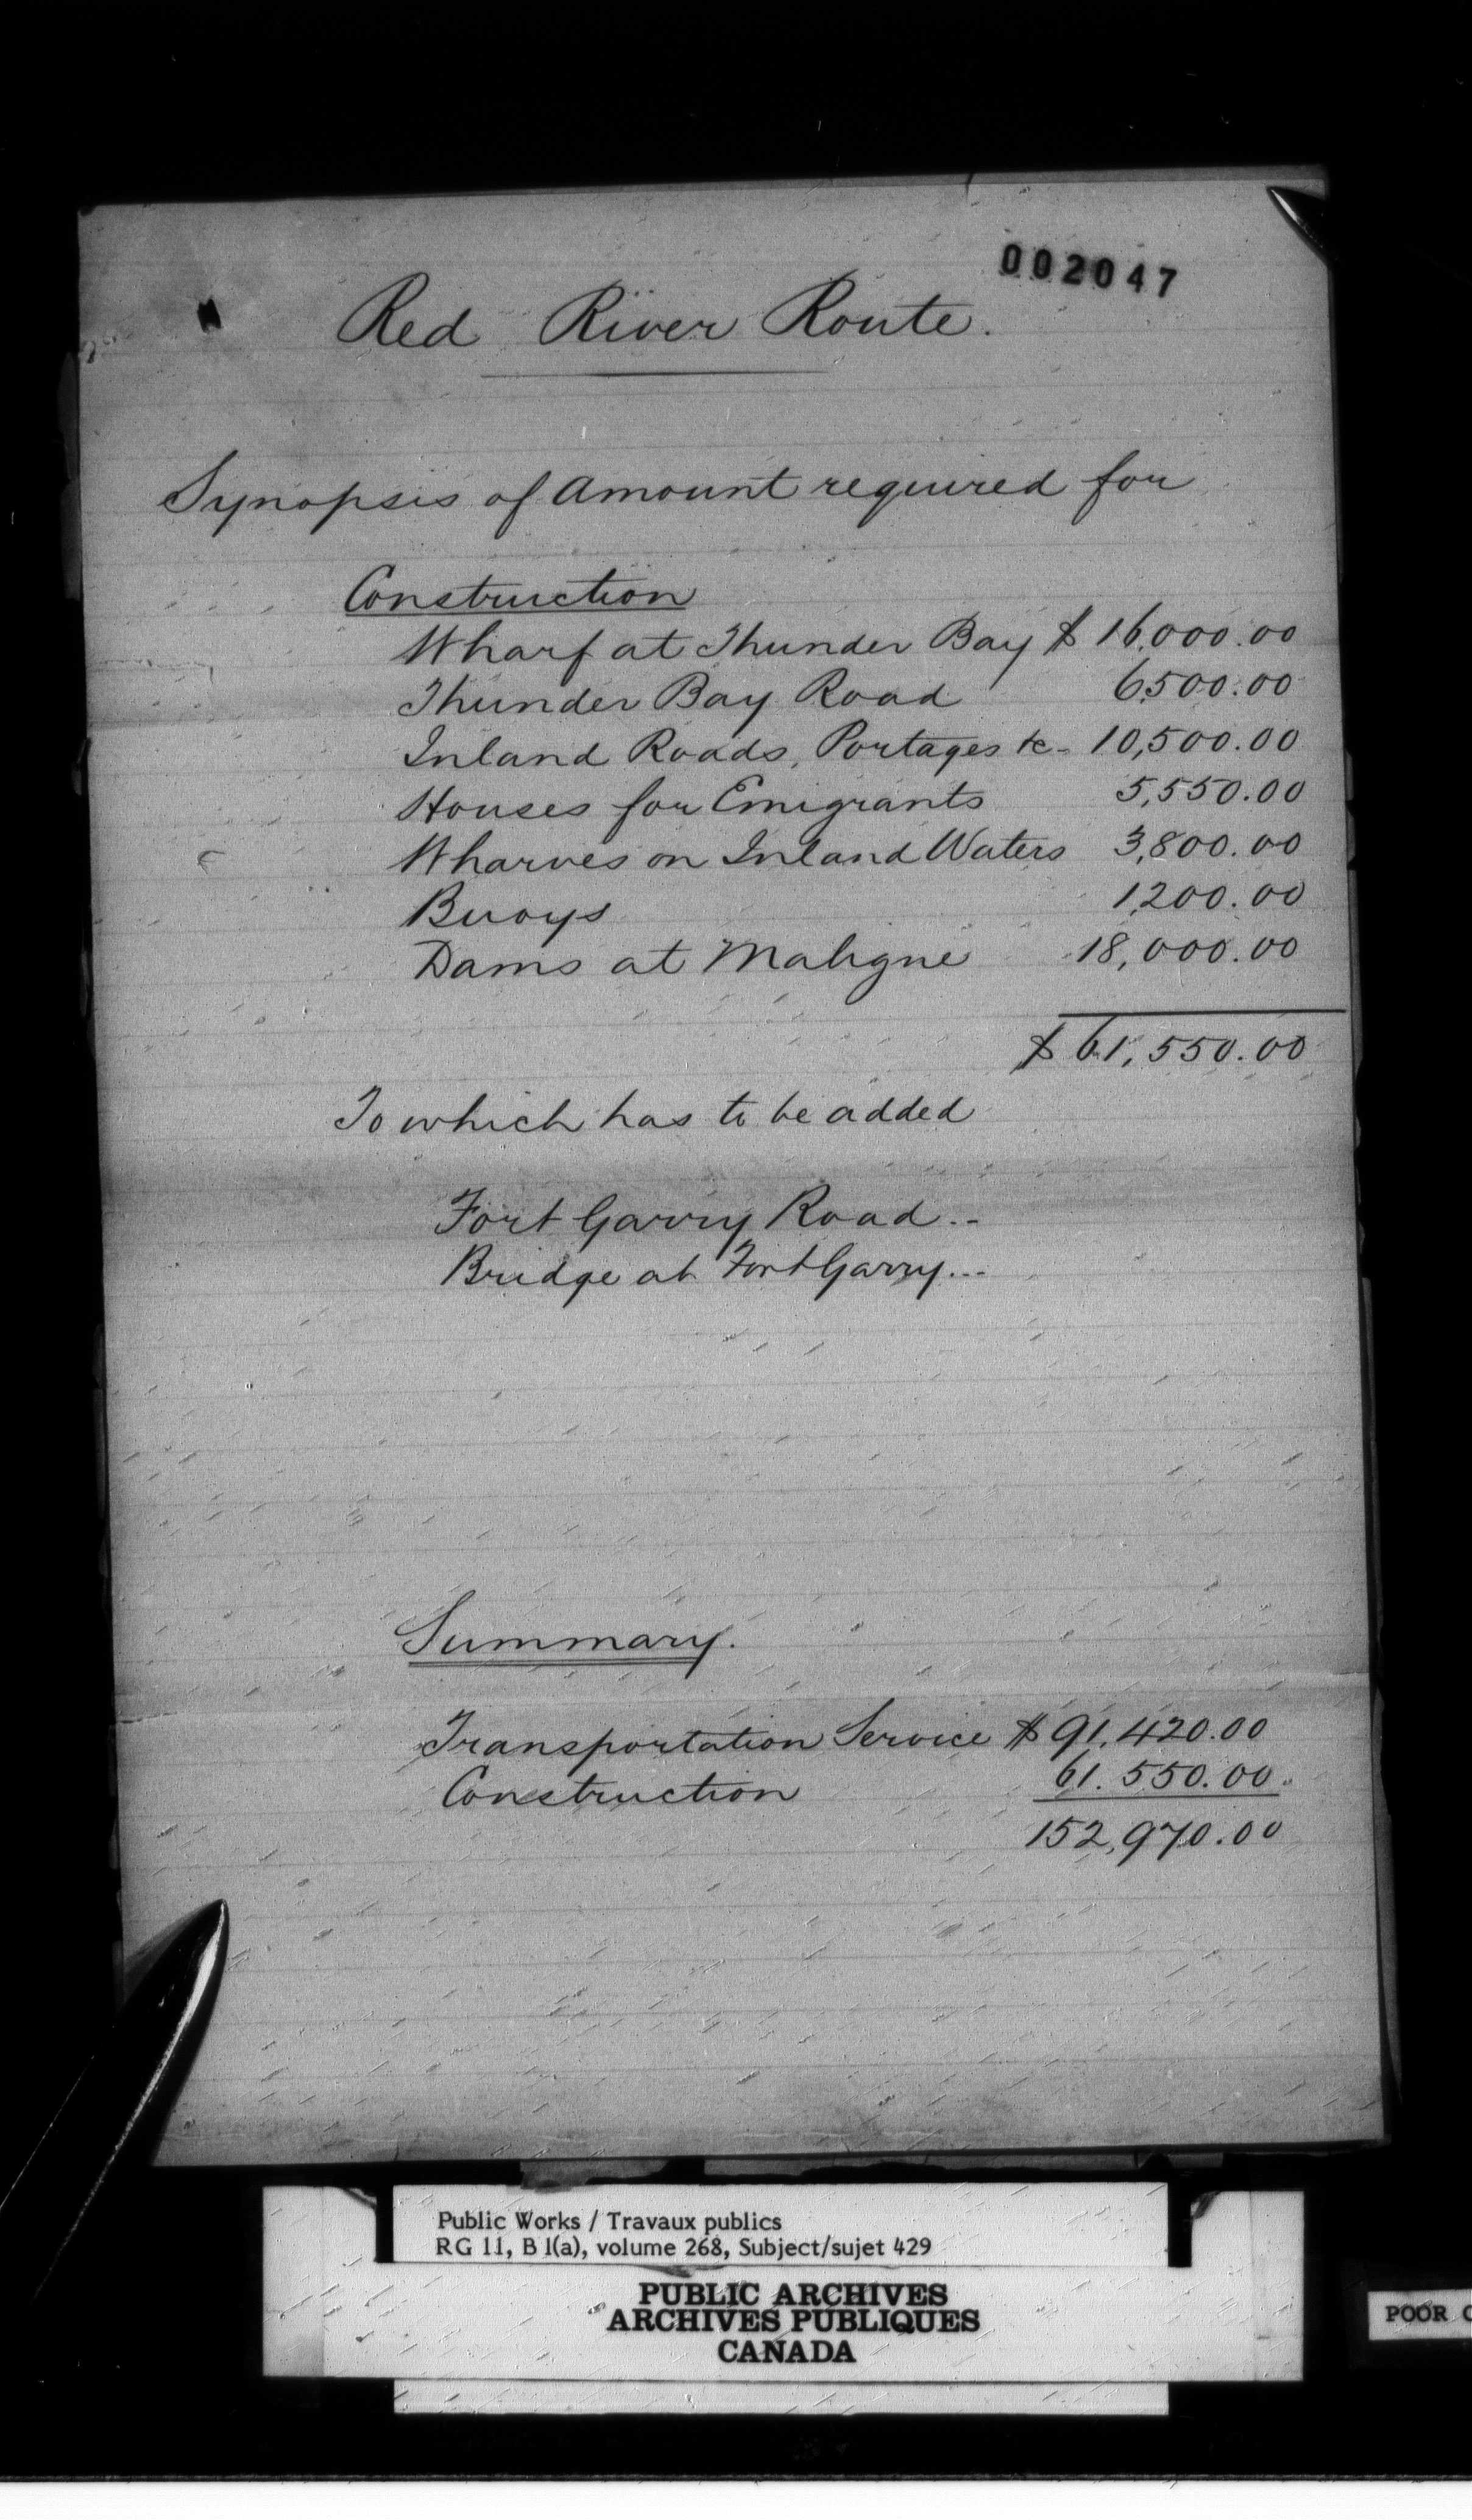 002047
Red River Route.
Synopsis of Amount required for
Construction
Wharf at Thunder Bay $ 16,000.00
Thunder Bay Road 6,500.00
Inland Roads, Portages &c - 10,500.00
Houses for Emigrants 5,550.00
Wharves on Inland Waters 3,800.00
Buoys 1,200.00
Dams at Maligne 18,000.00
$ 61,550.00
To which has to be added
Fort Garry Road..
Bridge at Fort Garry...
Summary.
Transportation Service $ 91,420.00
Construction 61.550.00.
152,970.00
Public Works / Travaux publics
RG 11, B 1(a), volume 268, Subject/sujet 429
PUBLIC ARCHIVES
ARCHIVES PUBLIQUES
CANADA
POOR